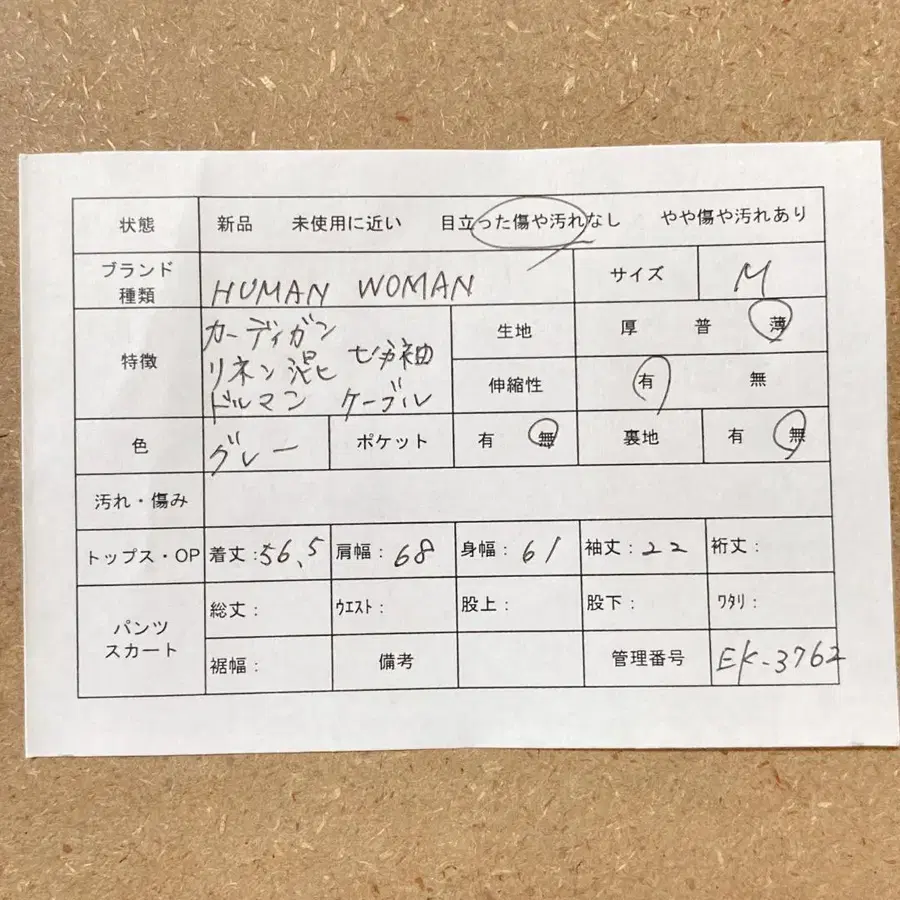 状態 新品 未使用に近い 目立った傷や汚れなし やや傷や汚れあり
ブランド
種類
HUMAN WOMAN
サイズ M
特徴
カーディガン
リネン混 七分袖
ドルマン ケーブル
生地 厚 普 薄
伸縮性 有 無
色 グレー ポケット 有 無 裏地 有 無
汚れ・傷み
トップス・OP 着丈:56.5 肩幅: 68 身幅: 61 袖丈: 22 裄丈:
パンツ
スカート
総丈: ウエスト: 股上: 股下: ワタリ:
裾幅: 備考 管理番号 EK-3762